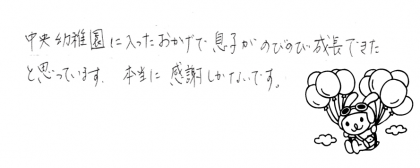 中央幼稚園に入ったおかげで息子がのびのび成長できた
と思っています。本当に感謝しかないです。